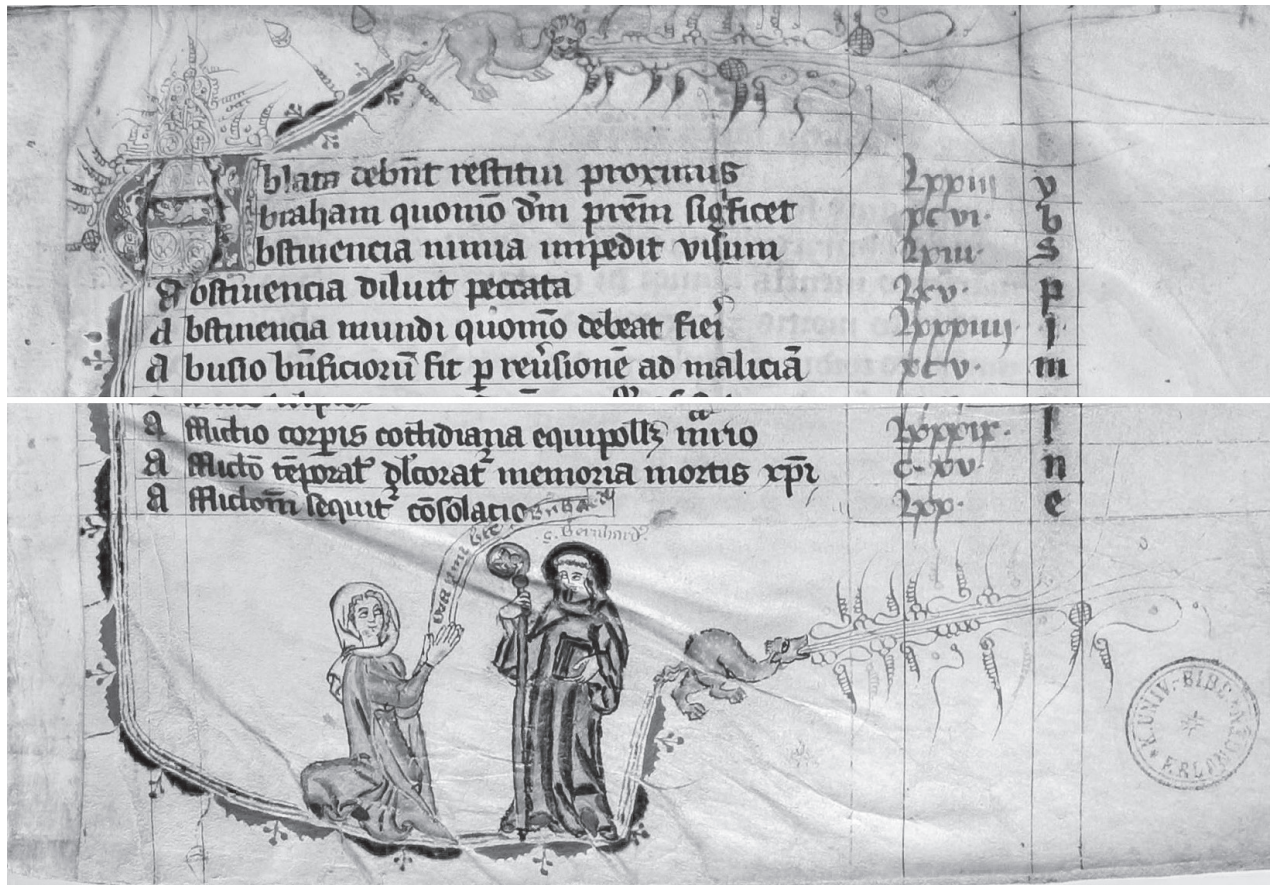 Ablata debēnt restitui proximis lxxiii v
Abraham quomō dm̄ prēm sigficet xcvi· b
Abstinencia nimia impedit visum lxiii· s
Abstinencia diluit peccata lxv· p
Abstinencia mundi quomō debeat fieri lxxxiiii· i·
Abusio bn̄ficiorū fit p reuˀsionē ad maliciā xcv· m
Afflictio corꝑis cottidiana equipollꝫ mirˀio lxxxix· l
Afflictō tēporal' dl'corat' memoria mortis xp̄i c·xv· n
Afflictōm̄ sequit' cōsolacio lxx· e
S. Bernhard'
K. UNIV.-BIBL.
ERLANGEN